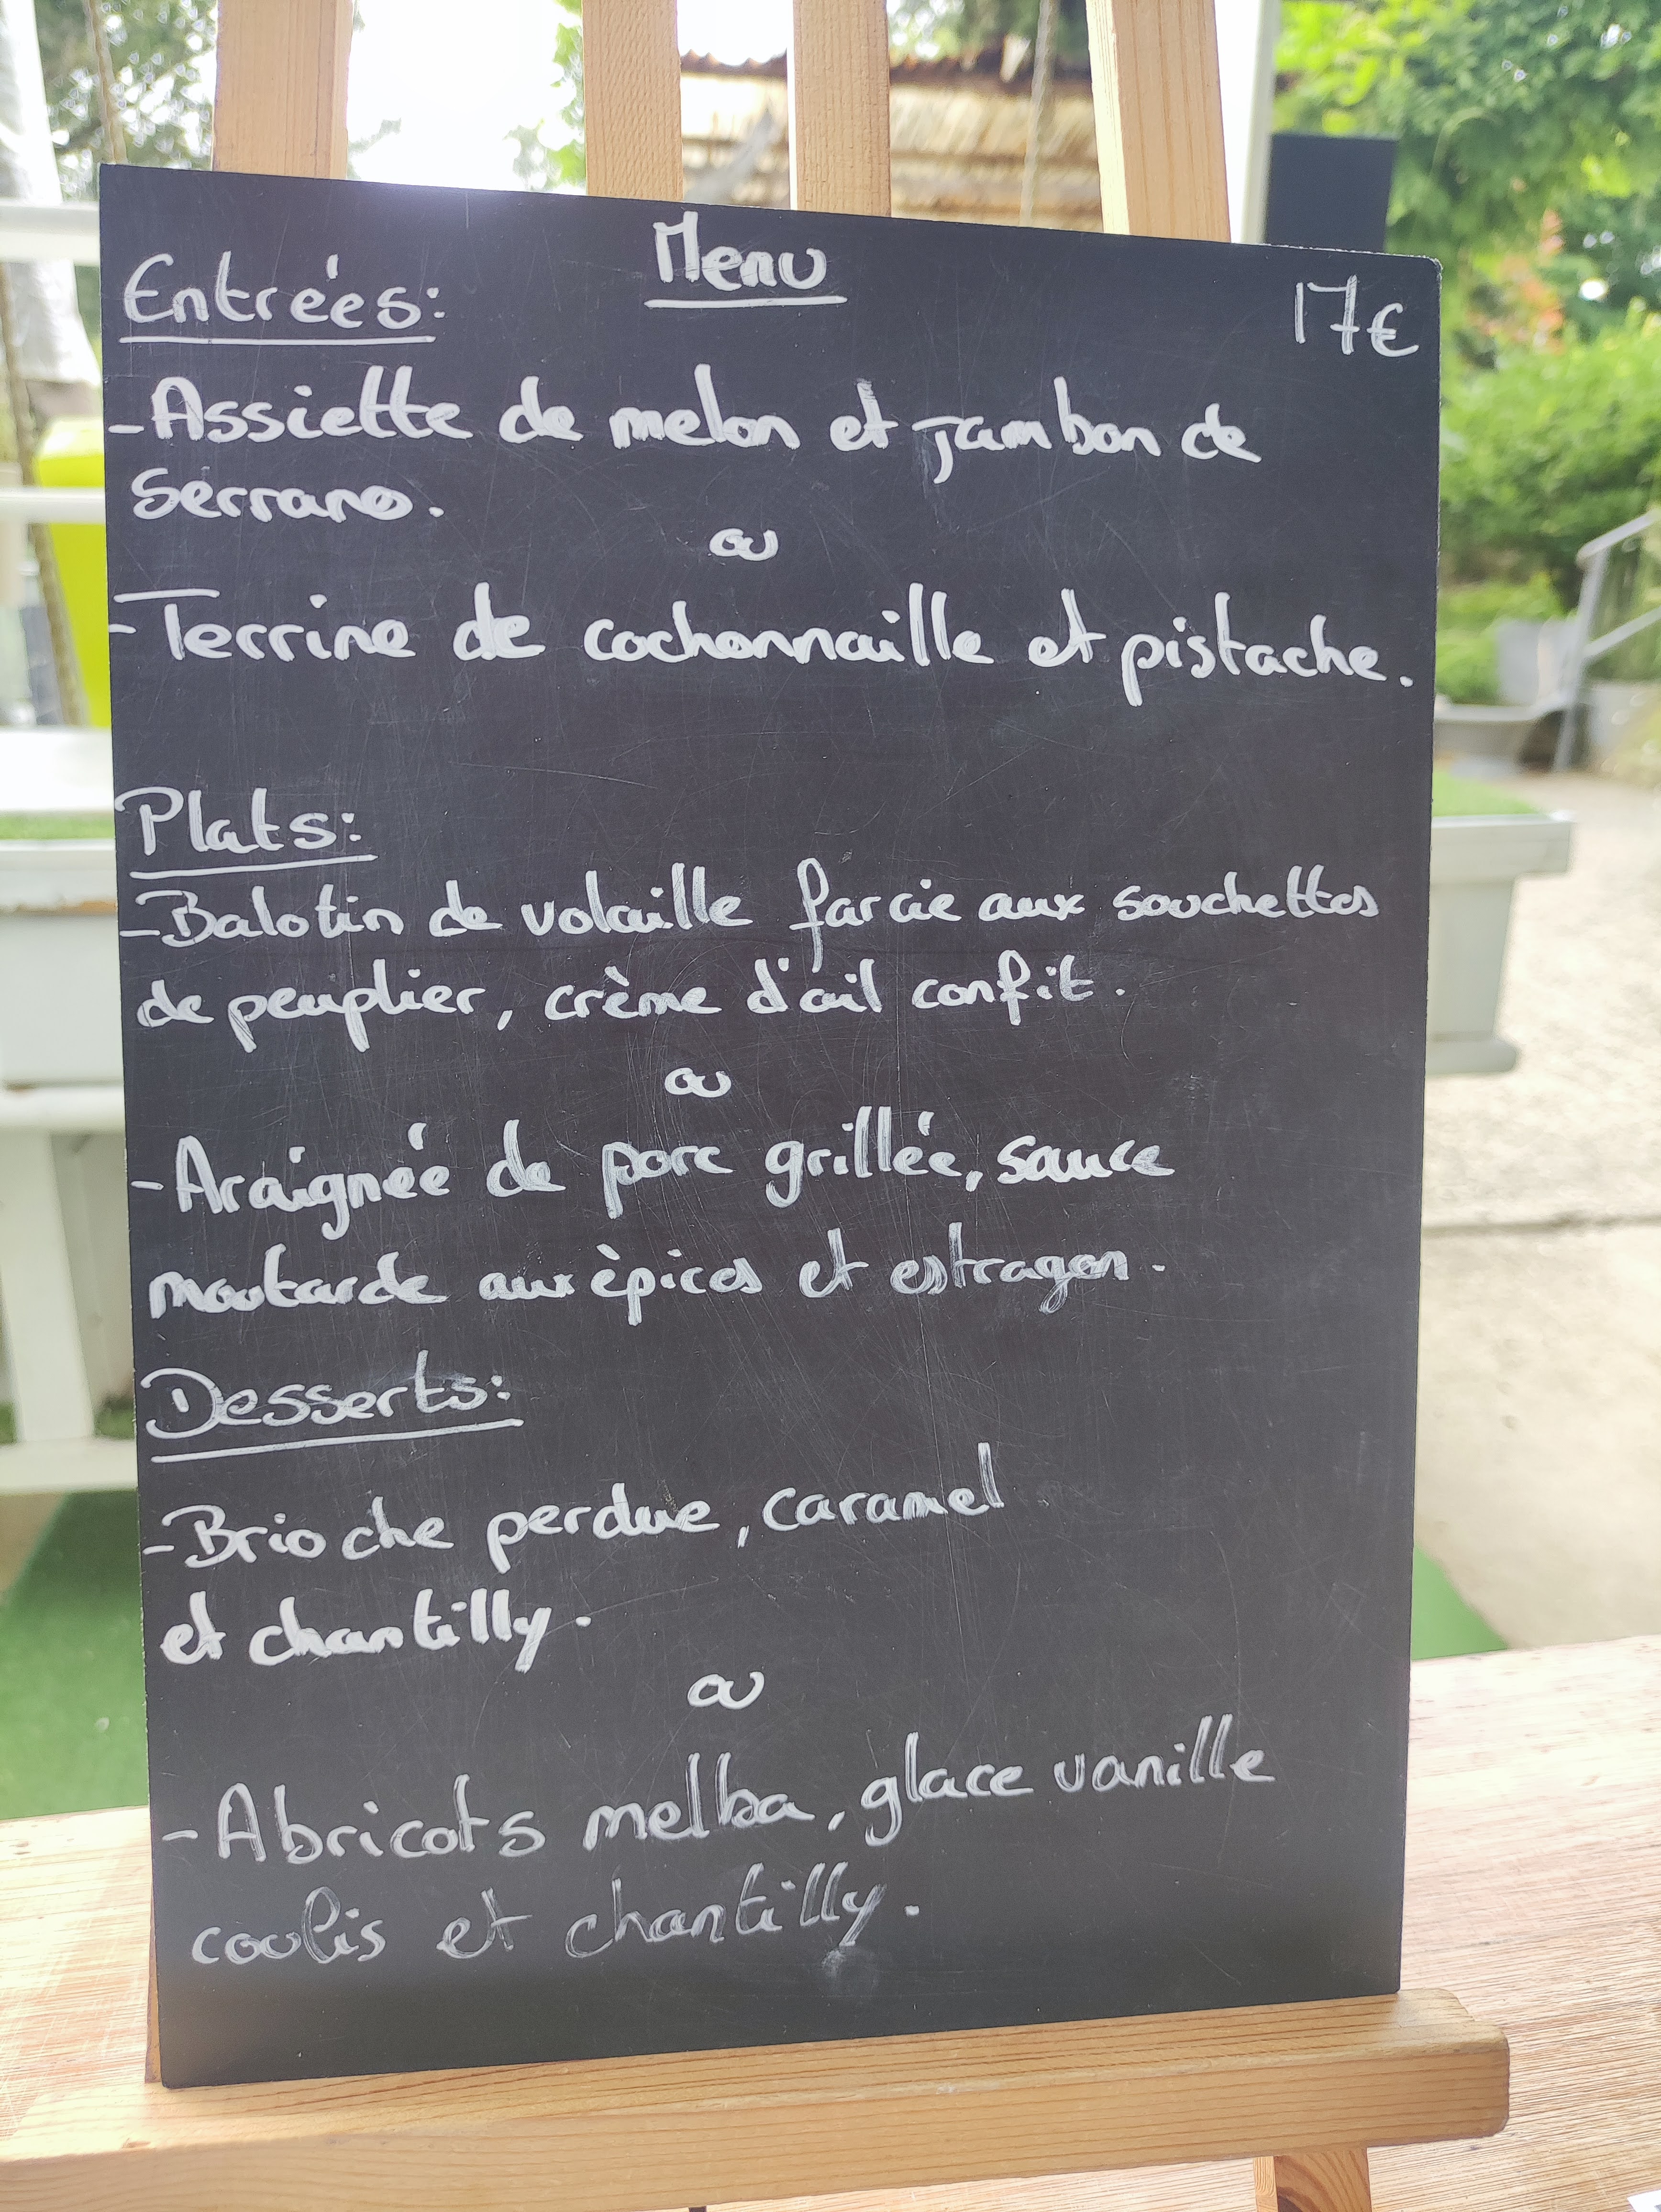 Menu
17€
Entrées:
-Assiette de melon et jambon de
Serrano.
ou
-Terrine de cochonnaille et pistache.
Plats:
-Balotin de volaille farcie aux souchettes
de peuplier, crème d'ail confit.
ou
-Araignée de porc grillée, sauce
moutarde aux èpices et estragon.
Desserts:
-Brioche perdue, caramel
et chantilly.
ou
-Abricots melba, glace vanille
coulis et chantilly.